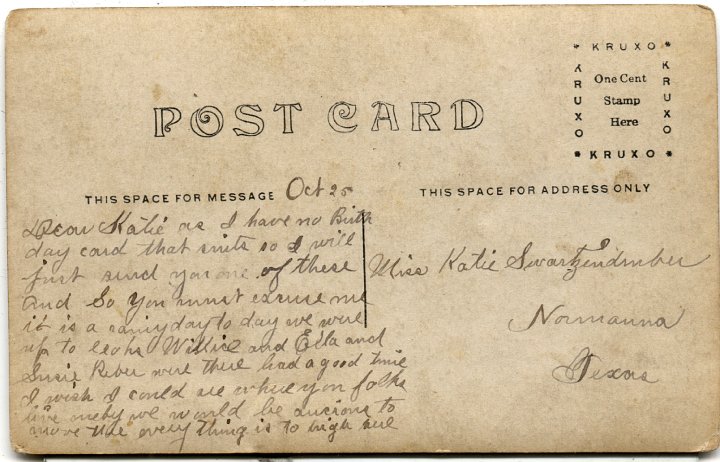 KRUXO
KRUXO
One Cent
Stamp
Here
KRUXO
KRUXO
POST CARD
THIS SPACE FOR MESSAGE
Oct 25
THIS SPACE FOR ADDRESS ONLY
Dear Katie as I have no Birth
day card that suits so I will
just send you one of these
and so you must excuse me
it is a rainy day to day we were
up to Willie and Ella and
Susie were there had a good time
I wish I could see where you folks
live we would be
move there every thing is to high here
Miss Katie Swartzendruber
Normanna
Texas